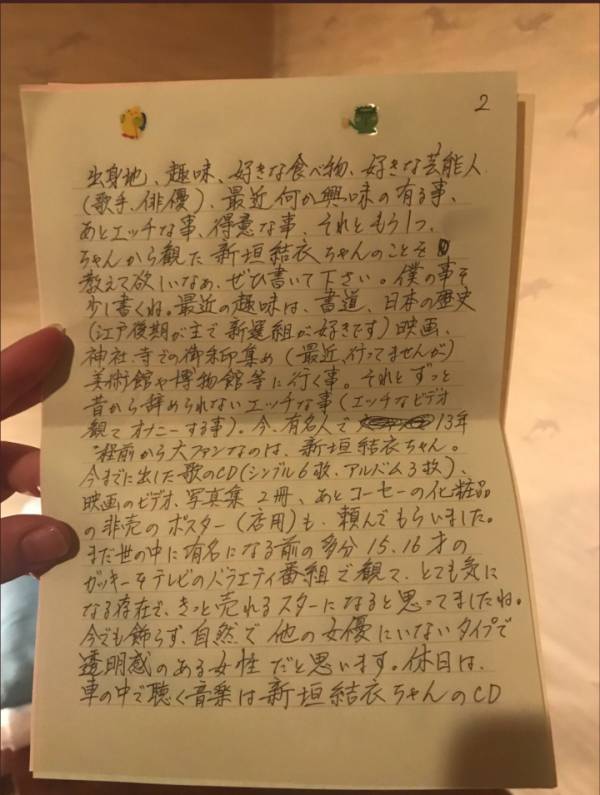 2
出身地、趣味、好きな食べ物、好きな芸能人
(歌手、俳優)、最近何か興味の有る事、
あとエッチな事、得意な事、それともう1つ、
ちゃんから観た新垣結衣ちゃんのことを
教えて欲しいなぁ、ぜひ書いて下さい。僕の事を
少し書くね。最近の趣味は、書道、日本の歴史
(江戸後期が主で新選組が好きです)映画、
神社寺での御朱印集め(最近、行ってませんが)
美術館や博物館等に行く事。それとずっと
昔から辞められないエッチな事(エッチなビデオ
観てオナニーする事)。今、有名人で13年
程前から大ファンなのは、新垣結衣ちゃん。
今までに出した歌のCD(シングル6枚、アルバム3枚)、
映画のビデオ、写真集2冊、あとコーセーの化粧品
の非売のポスター(店用)も、頼んでもらいました。
まだ世の中に有名になる前の多分15、16才の
ガッキーをテレビのバラエティ番組で観て、とても気に
なる存在で、きっと売れるスターになると思ってましたね。
今でも飾らず、自然で他の女優にいないタイプで
透明感のある女性だと思います。休日は、
車の中で聴く音楽は新垣結衣ちゃんのCD